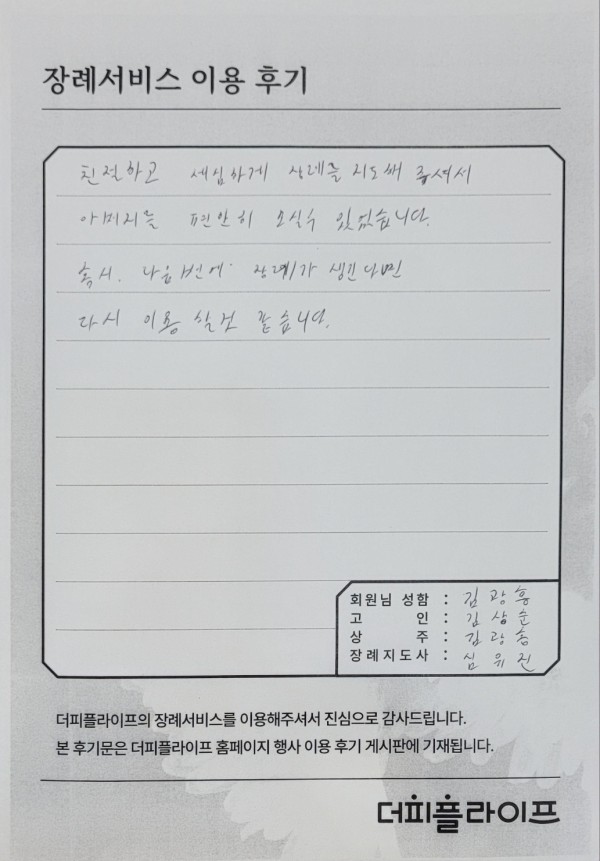 장례서비스 이용 후기
친절하고 세심하게 장례를 지도해 주셔서
아버지를 편안히 모실수 있었습니다.
혹시. 다음번에 장례가 생긴다면
다시 이용 할것 같습니다.
회원님 성함 : 김광흥
고 인 : 김상순
상 주 : 김광흥
장례지도사 : 심유진
더피플라이프의 장례서비스를 이용해주셔서 진심으로 감사드립니다.
본 후기문은 더피플라이프 홈페이지 행사 이용 후기 게시판에 기재됩니다.
더피플라이프